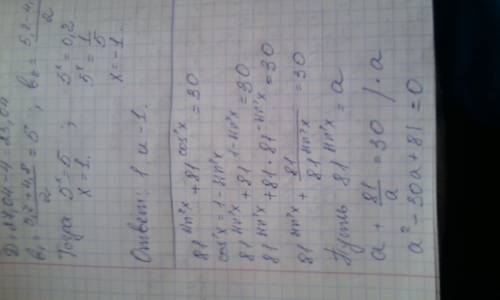 D = 27,04 - 4 = 23,04
b₁ = (5,2 + 4,8)/2 = 5 ; b₂ = (5,2 - 4,
Тогда 5ˣ = 5 ; 5ˣ = 0,2
x = 1. 5ˣ = 1/5
x = -1.
Ответ: 1 и -1.
81^sin²x + 81^cos²x = 30
cos²x = 1 - sin²x
81^sin²x + 81^1-sin²x = 30
81^sin²x + 81 · 81^-sin²x = 30
81^sin²x + 81/81^sin²x = 30
Пусть 81^sin²x = a
a + 81/a = 30 / · a
a² - 30a + 81 = 0